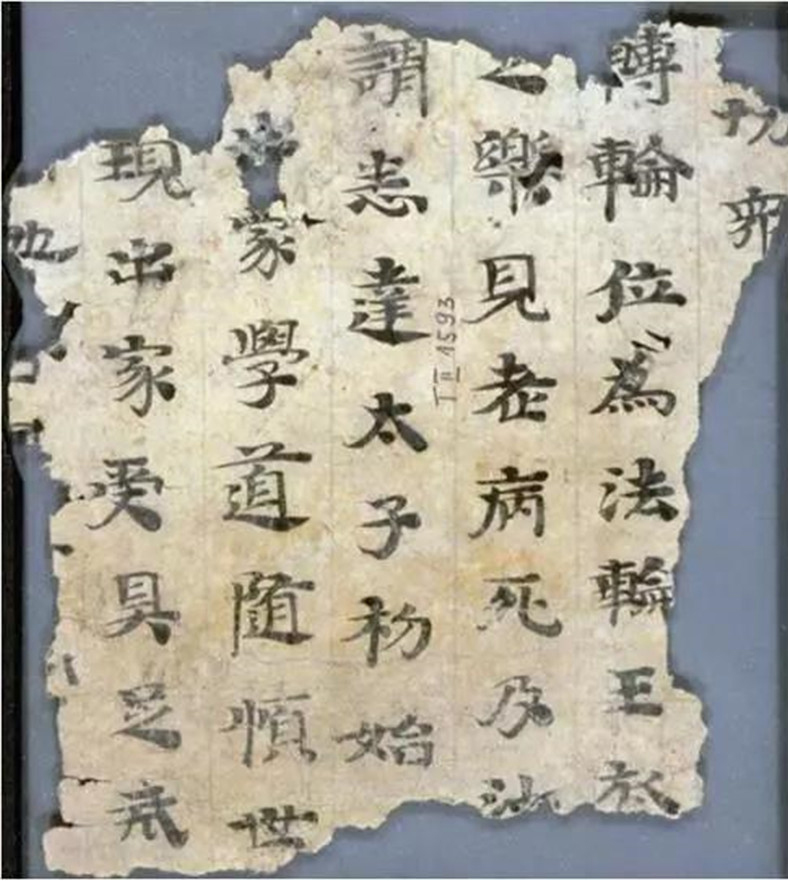 切
轉輪位為法輪王於
樂見老病死及沙
謂悉達太子初始
家學道隨順世
現出家受具足戒
TII 1593